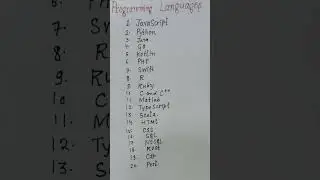 Programming Languages
1 JavaScript
2 Python
3 Java
4 Go
5 Kotlin
6 PHP
7 Swift
8 R
9 Ruby
10 C and C++
11 Matlab
12 TypeScript
13 Scala
14 HTML
15 CSS
16 SQL
17 NOSQL
18 Rust
19
20 Perl